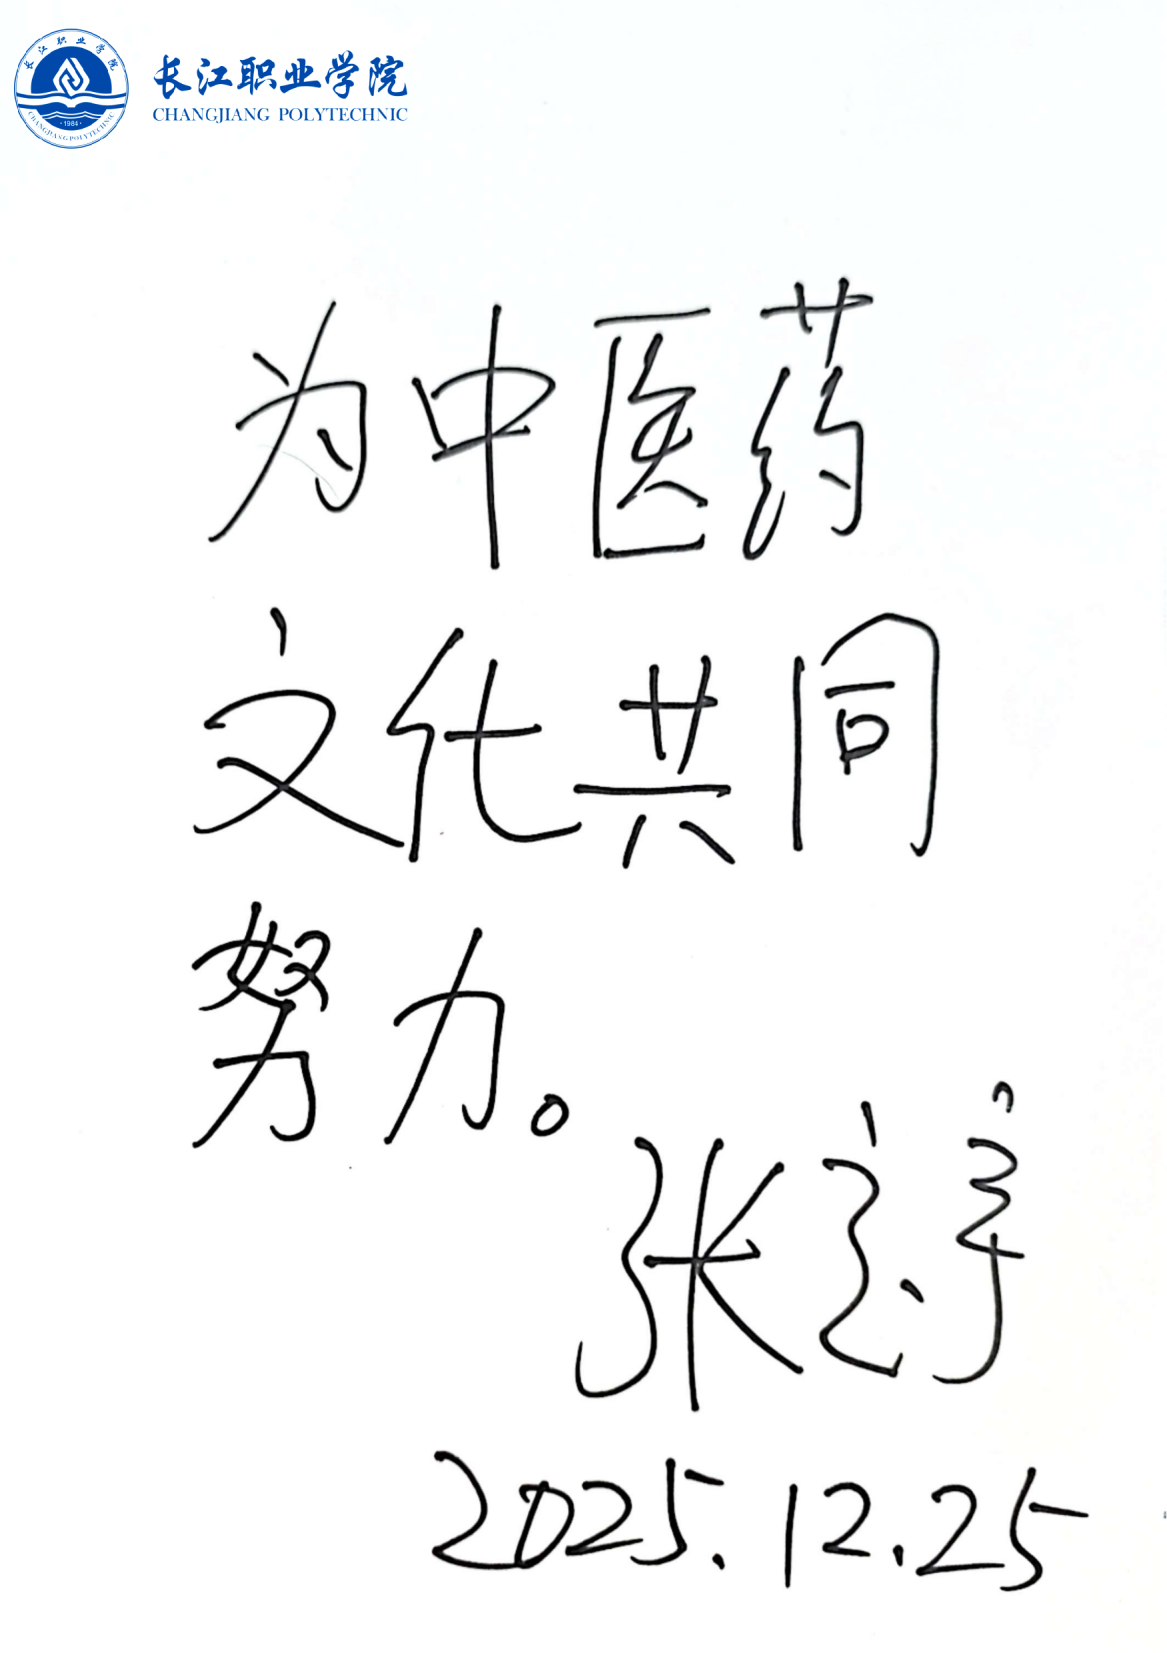 长江职业学院
CHANGJIANG POLYTECHNIC
长江职业学院
·1984·
CHANGJIANG POLYTECHNIC
为中医药
文化共同
努力。
张
2025.12.25